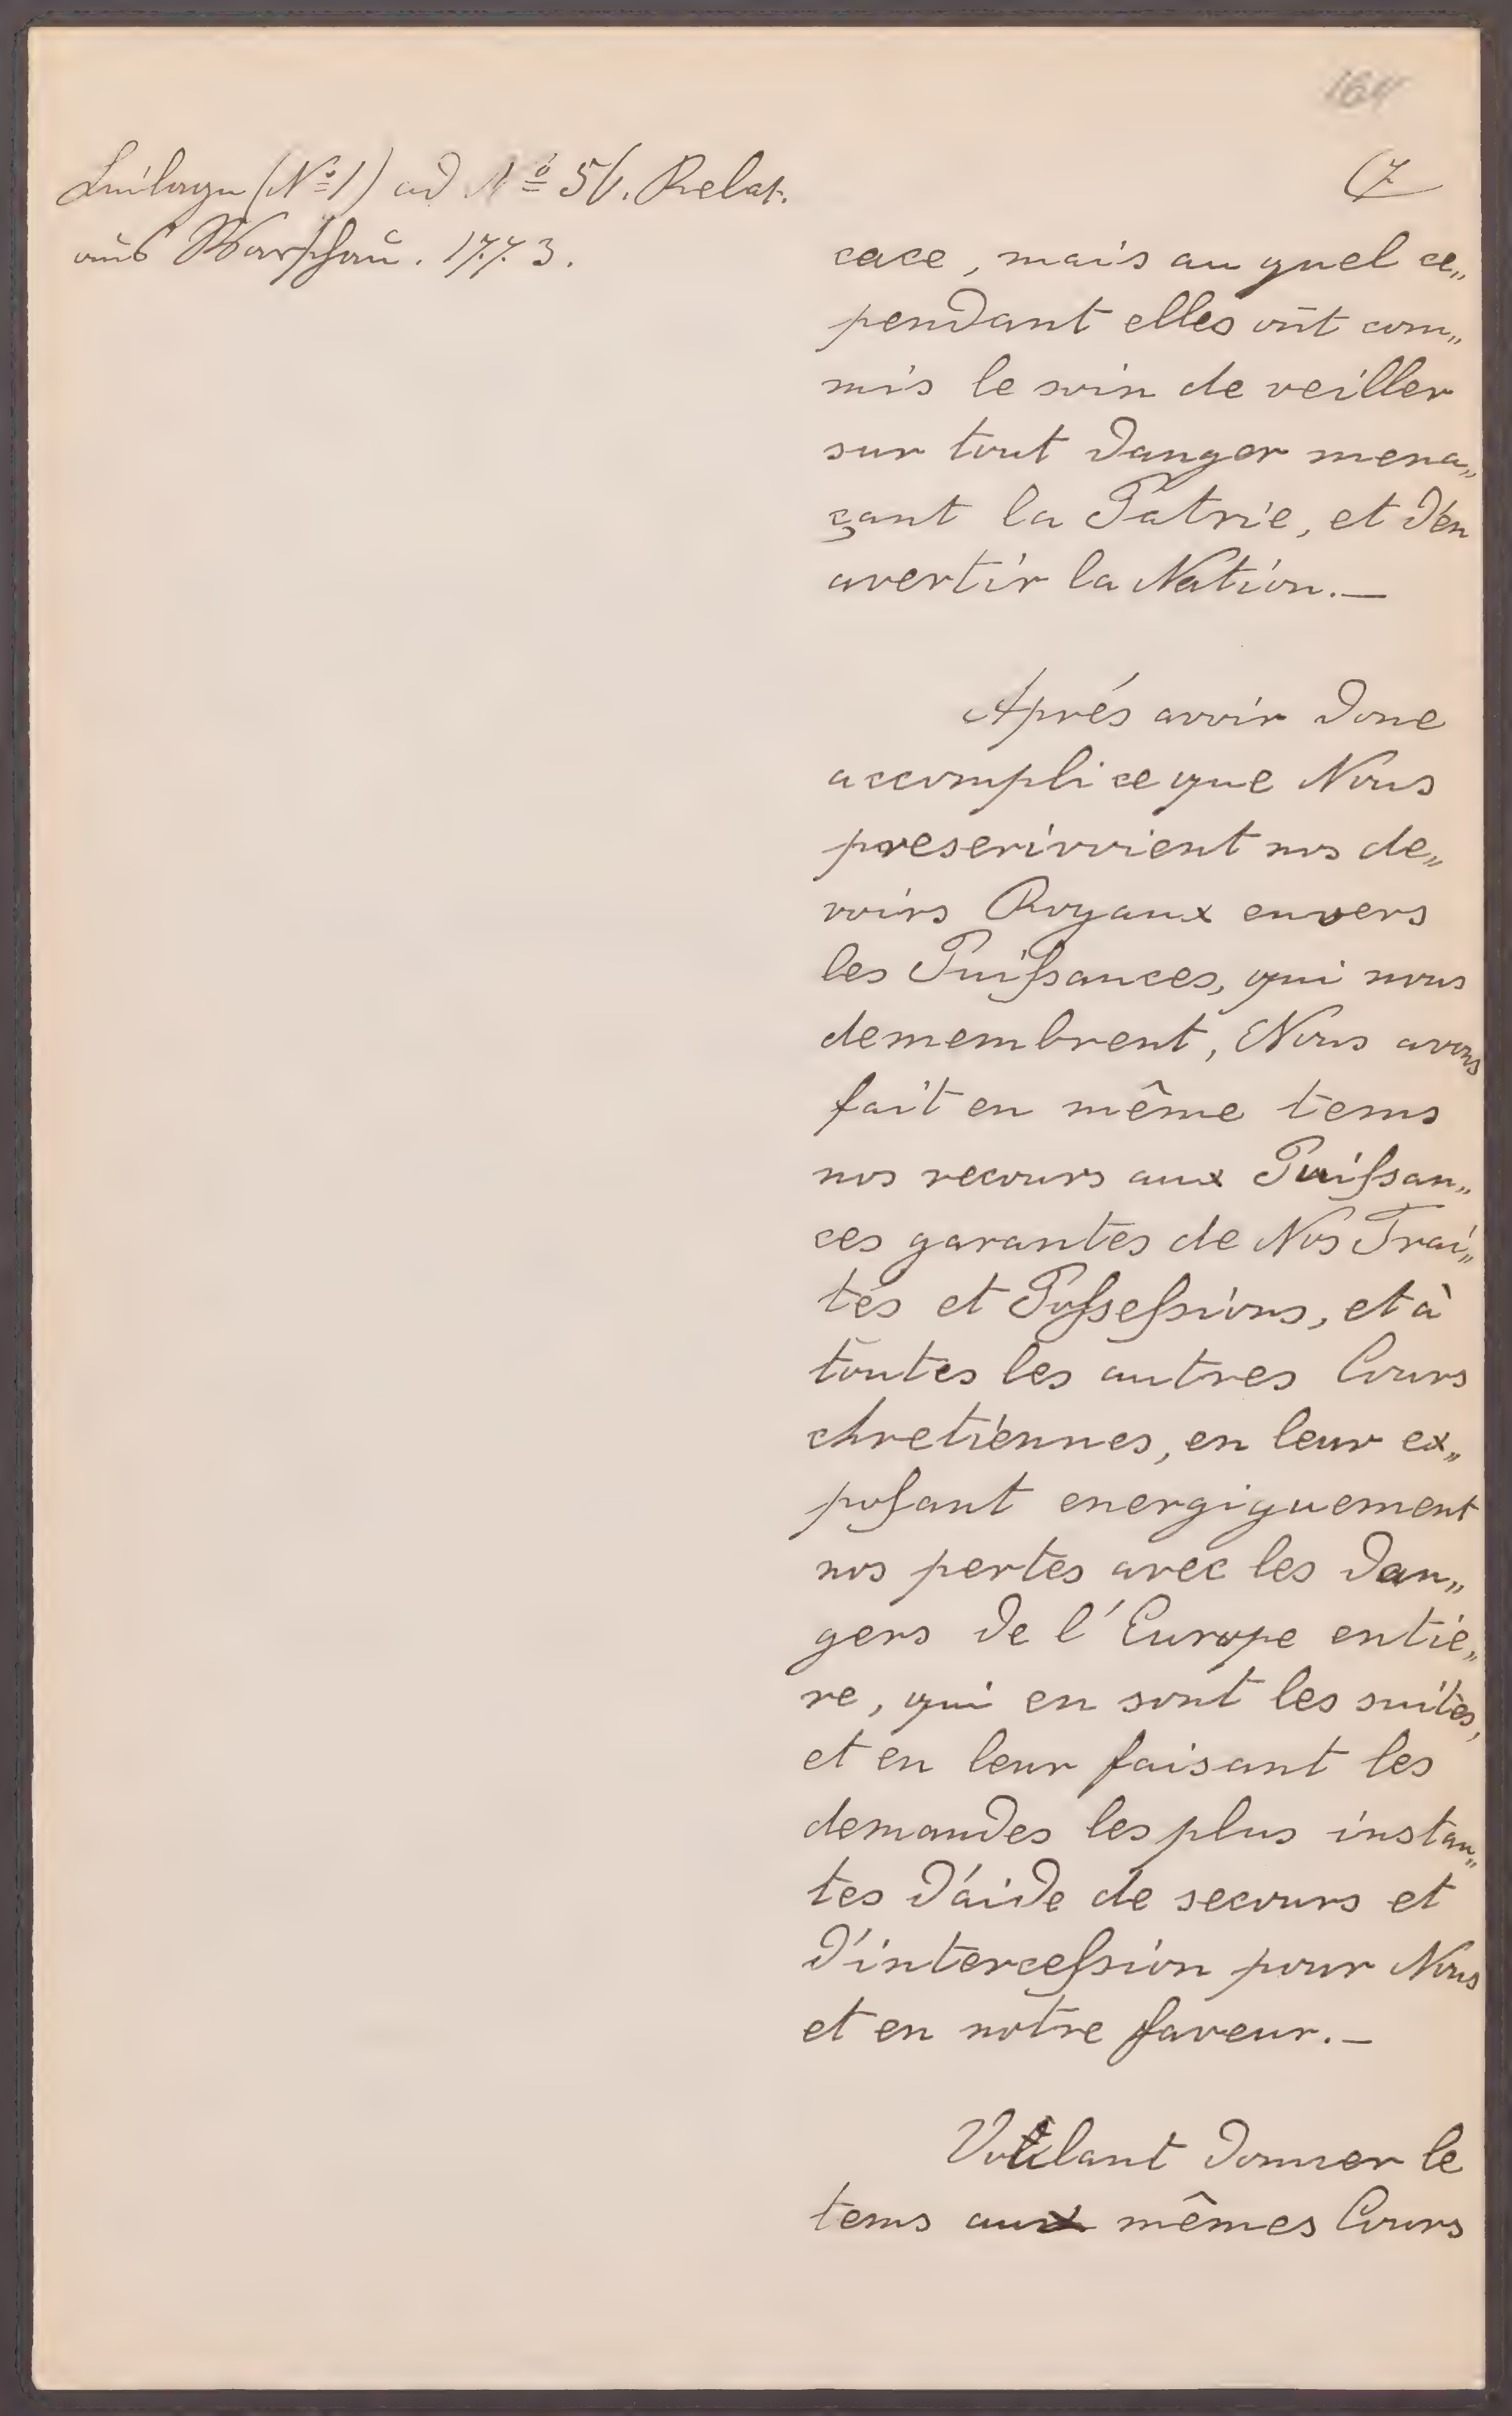 164
Beilage (Nº 1) ad Nº 56. Relat.
aus Warschau. 1773.
(7
cace, mais au quel ce„
pendant elles ont com„
mis le soin de veiller
sur tout danger mena„
çant la Patrie, et d'en
avertir la Nation.—
Aprés avoir donc
accompli ce que Nous
prescrivoient nos de„
voirs Royaux envers
les Puiſsances, qui nous
demembrent, Nous avons
fait en même tems
nos recours aux Puiſsan„
ces garantes de Nos Trai„
tés et Poſseſsions, et à
toutes les autres Cours
chretiennes, en leur ex„
poſant energiquement
nos pertes avec les dan„
gers de l'Europe entie„
re, qui en sont les suites,
et en leur faisant les
demandes les plus instan„
tes d'aide de secours et
d'interceſsion pour Nous
et en notre faveur.—
Voulant donner le
tems aux mêmes Cours